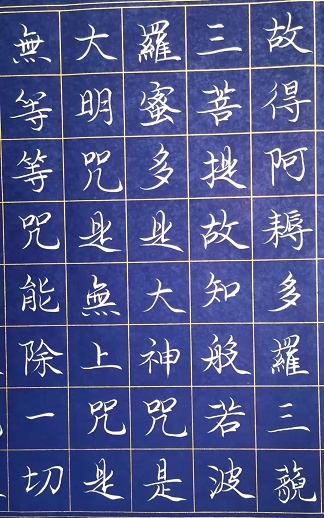 故得阿耨多羅三藐
三菩提故知般若波
羅蜜多是大神咒是
大明咒是無上咒是
無等等咒能除一切